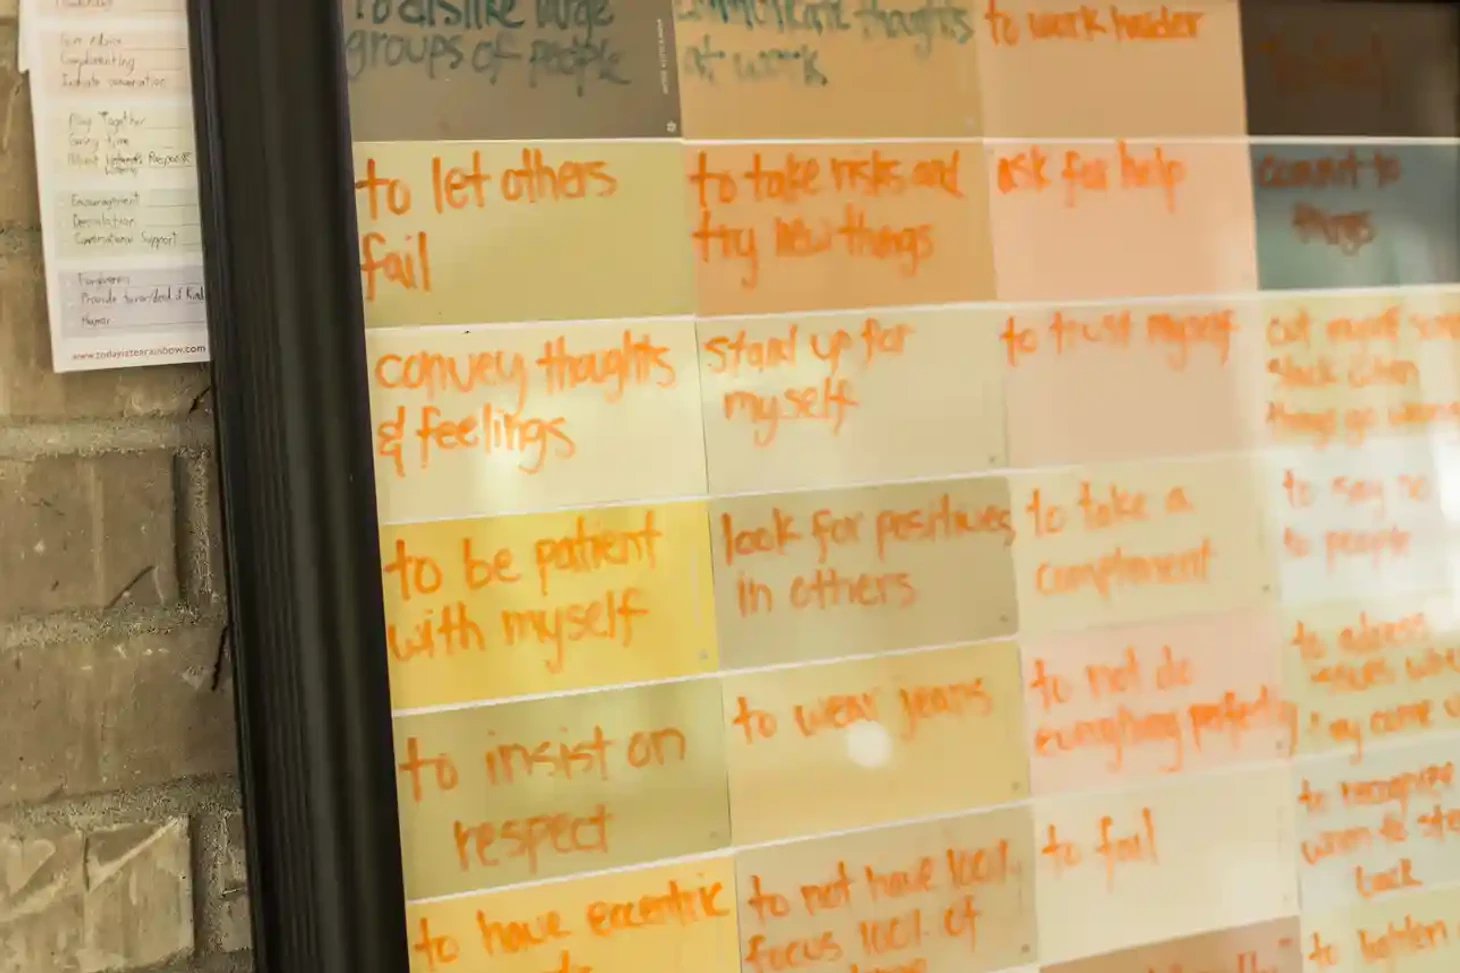 Give Advice
Complimenting
Initiate conversation
Play Together
Giving time
Listening
Encouragement
Consolation
Support
Forgiveness
Provide favor/deed & Kind
Humor
www.todayistearainbow.com
to dislike large
groups of people
thoughts
at work
to work harder
to let others
fail
to take risks and
try new things
ask for help
commit to
things
convey thoughts
& feelings
stand up for
myself
to trust myself
cut myself some
slack when
things go wrong
to be patient
with myself
look for positives
in others
to take a
complement
to say no
to people
to insist on
respect
to wear jeans
to not do
everything perfectly
to address
issues when
they come u
to have eccentric
to not have 100%
focus 100% of
to fail
to recognize
when to ste
back
to lighten